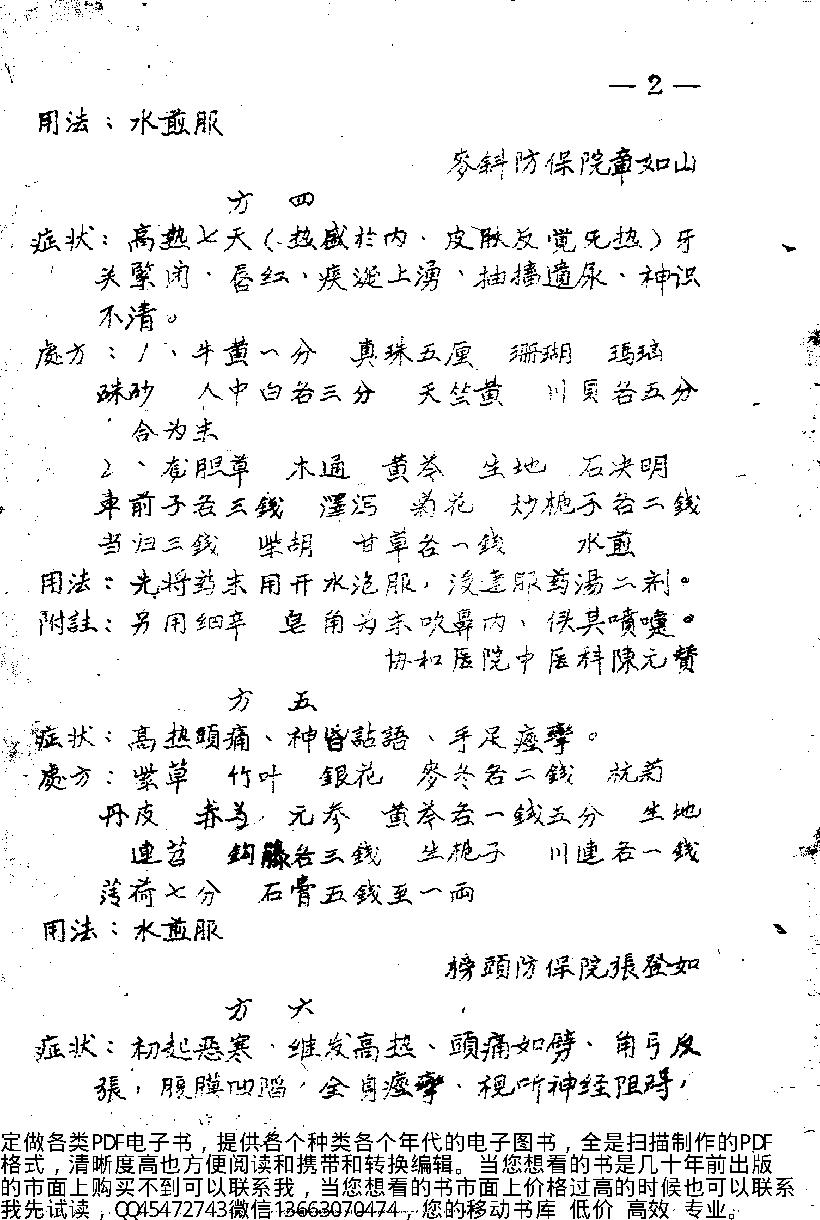 — 2 —
用法：水煎服
麥斜防保院章如山
方 四
症状：高热七天（热盛於内、皮肤反觉旡热）牙
关緊闭、唇红、痰涎上湧、抽搐遗尿、神识
不清。
處方：1、牛黄一分 真珠五厘 珊瑚 瑪瑙
硃砂 人中白各三分 天竺黄 川貝各五分
合为末
2、胆草 木通 黄芩 生地 石决明
車前子各三錢 澤泻 菊花 炒栀子各二錢
当归三錢 柴胡 甘草各一錢 水煎
用法：先将药末用开水泡服，後連服药湯二剂。
附註：另用细辛 皂角为末吹鼻内、俟其噴嚏。
协和医院中医科陳元贊
方 五
症状：高热頭痛、神昏詀語、手足痙攣。
處方：紫草 竹叶 銀花 麥冬各二錢 杭菊
丹皮 赤芍 元参 黄芩各一錢五分 生地
連召 鈎藤各三錢 生栀子 川連各一錢
薄荷七分 石膏五錢至一両
用法：水煎服
榜頭防保院張登如
方 六
症状：初起恶寒、继发高热、頭痛如劈、角弓反
張，腹膜凹陷，全身痙攣、視听神经阻碍，
定做各类PDF电子书，提供各个种类各个年代的电子图书，全是扫描制作的PDF
格式，清晰度高也方便阅读和携带和转换编辑。当您想看的书是几十年前出版
的市面上购买不到可以联系我，当您想看的书市面上价格过高的时候也可以联系
我先试读，QQ45472743微信13663070474，您的移动书库 低价 高效 专业。